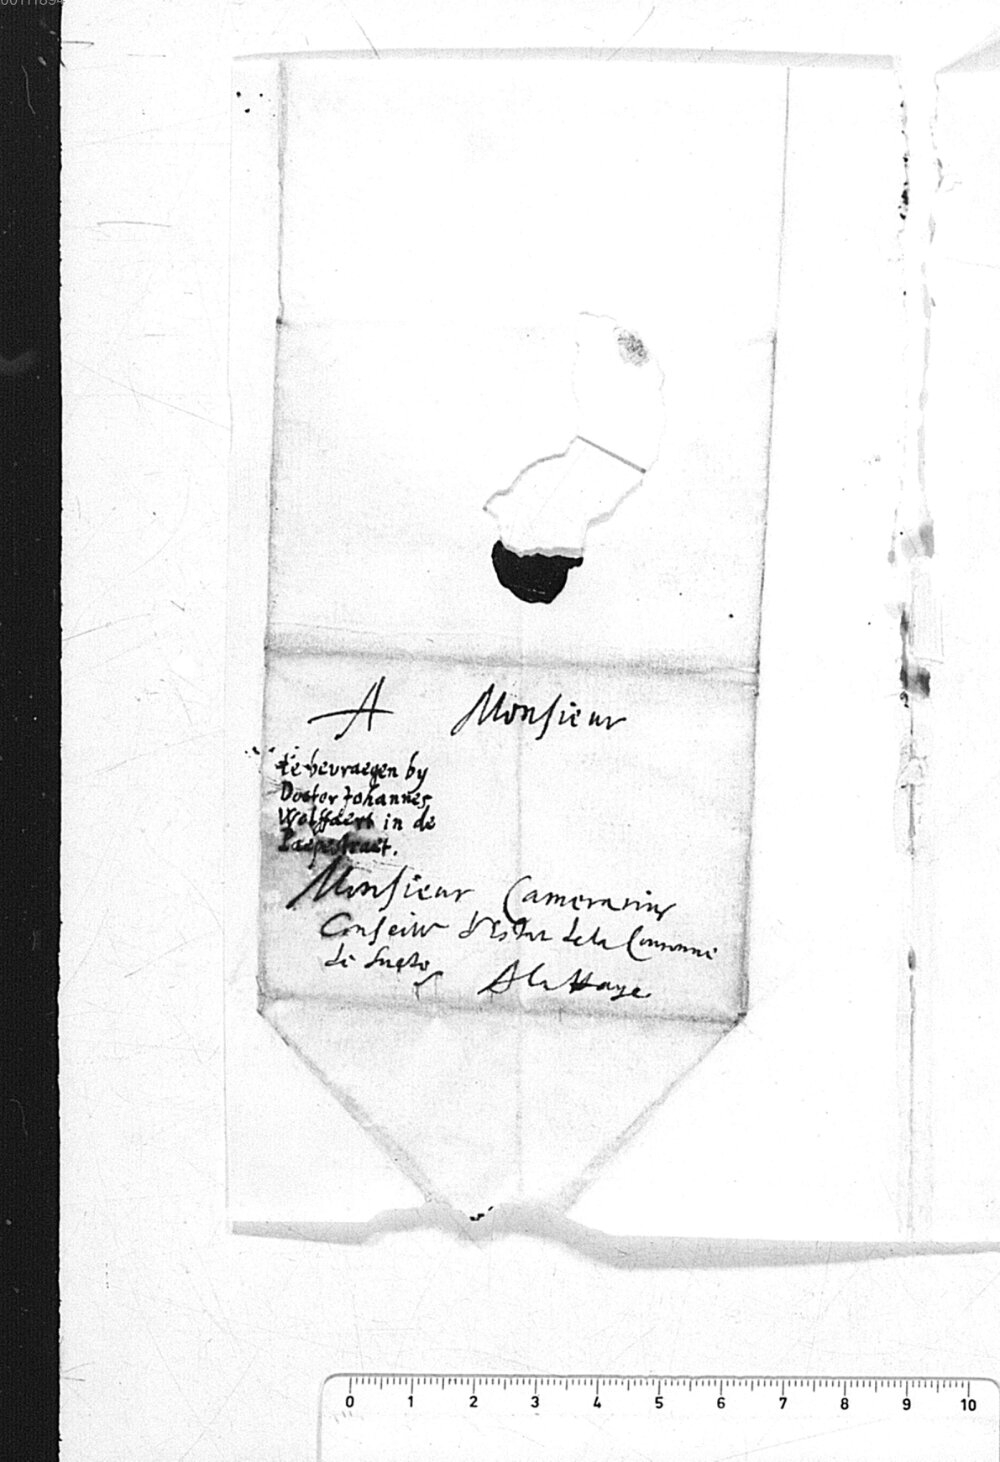 A Monsieur
te bevraegen by
Doctor Johannes
Wolffaert in de
Paepestraet.
Monsieur Camerarius
Conseiller d'Estat de la Couronne
de Suede
A la Haye
0 1 2 3 4 5 6 7 8 9 10